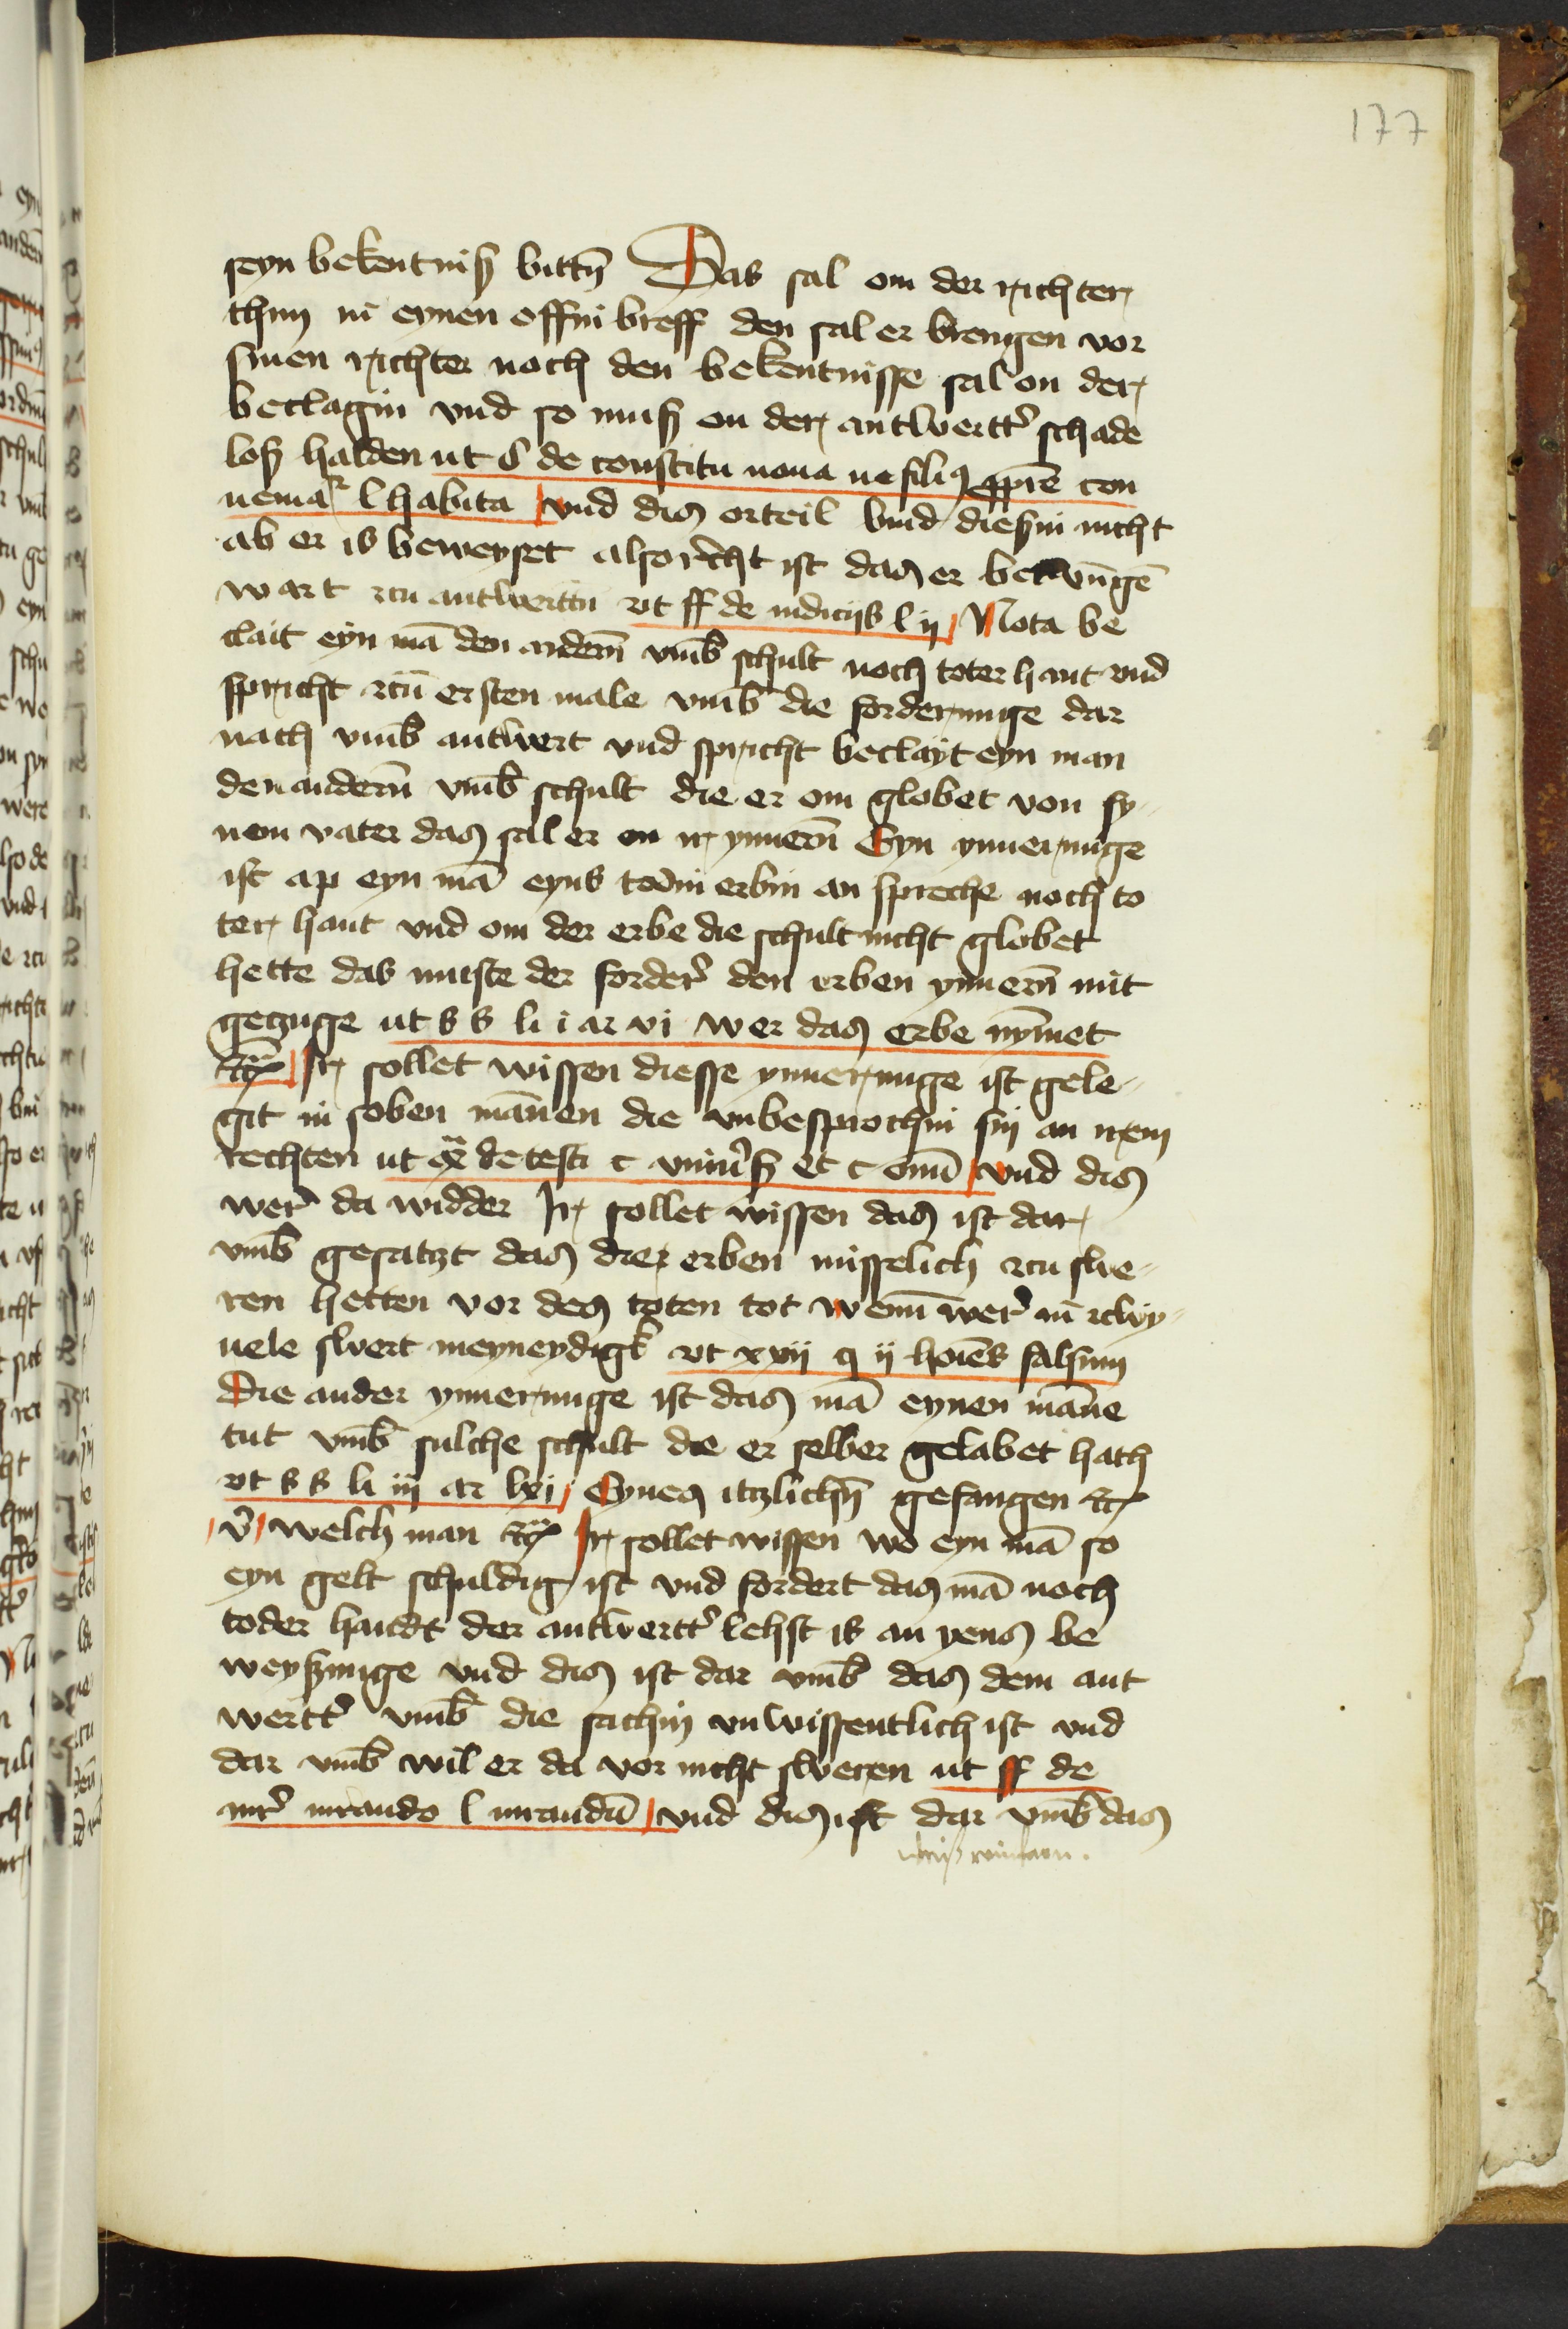 177
seyn bekentniß bittñ Das sal om der richter
thun in eynen offin breff den sal er brengen vor
sinen richter noch den bekentnisse sal on der
beclagin vnd so muß on der antwertt' schade
loß halden ut C de constitu noua ne filiꝯ ꝓ pre con
uema l habita vnd diꝫ orteil bind dießin nicht
ab er is beweyset also recht ist daꝫ er betwūgē
wart zcu antwerttn vt ff de iudicijs l ij Nota be
clait eyn mā den andern̄ vmb schult noch toter hant vnd
spricht zcū ersten male vmb die forderunge dar
nach vmb antwert vnd spricht beclayt eyn man
den andern̄ vmb schult die er om globet von sy
nem vater daꝫ sal er en ir ynnern̄ Eyn ynnerunge
ist ap eyn mā eyns todin erbin an spreche noch to
ter hant vnd om der erbe die schult nicht globet
hette das muste der forder' den erben ynnern̄ mit
geczuge ut s s li i ar vi wer daꝫ erbe nym̄et
etc Ir sollet wissen diesse ynnerunge ist gele
git in soben mānen die vnbesprochin sin an irem
rechten ut ex de testi c vniu'ß et c om̄ vnd diꝫ
wer' da widder Ir sollet wissen daꝫ ist dar
vmb gesatzt daꝫ dieꝫ erben misselich zcu swe
ren hetten vor deꝫ toten tot wenn̄ wer' in zcwy
uele swert meyneydigk vt xxij q ij hoīes falsum
Die ander ynnerunge ist daꝫ mā eynen māne
tut vmb sulche schult die er selber gelabet hath
vt s s li iij ar lxi Eyneꝫ itzlichñ gefangen etc
v' welch man etc Ir sollet wissen wo eyn mā so
eyn gelt schuldig ist vnd fordert daꝫ mā noch
toder handt der antwertt' lehst is an yenꝫ be
weyßunge vnd diꝫ ist dar vmb daꝫ dem ant
wertt' vmb die sachin vnwissentlich ist vnd
dar vmb wil er da vor nicht sweren ut ff de
iur' iurando l iurandū vnd diꝫ ist dar vmb daꝫ